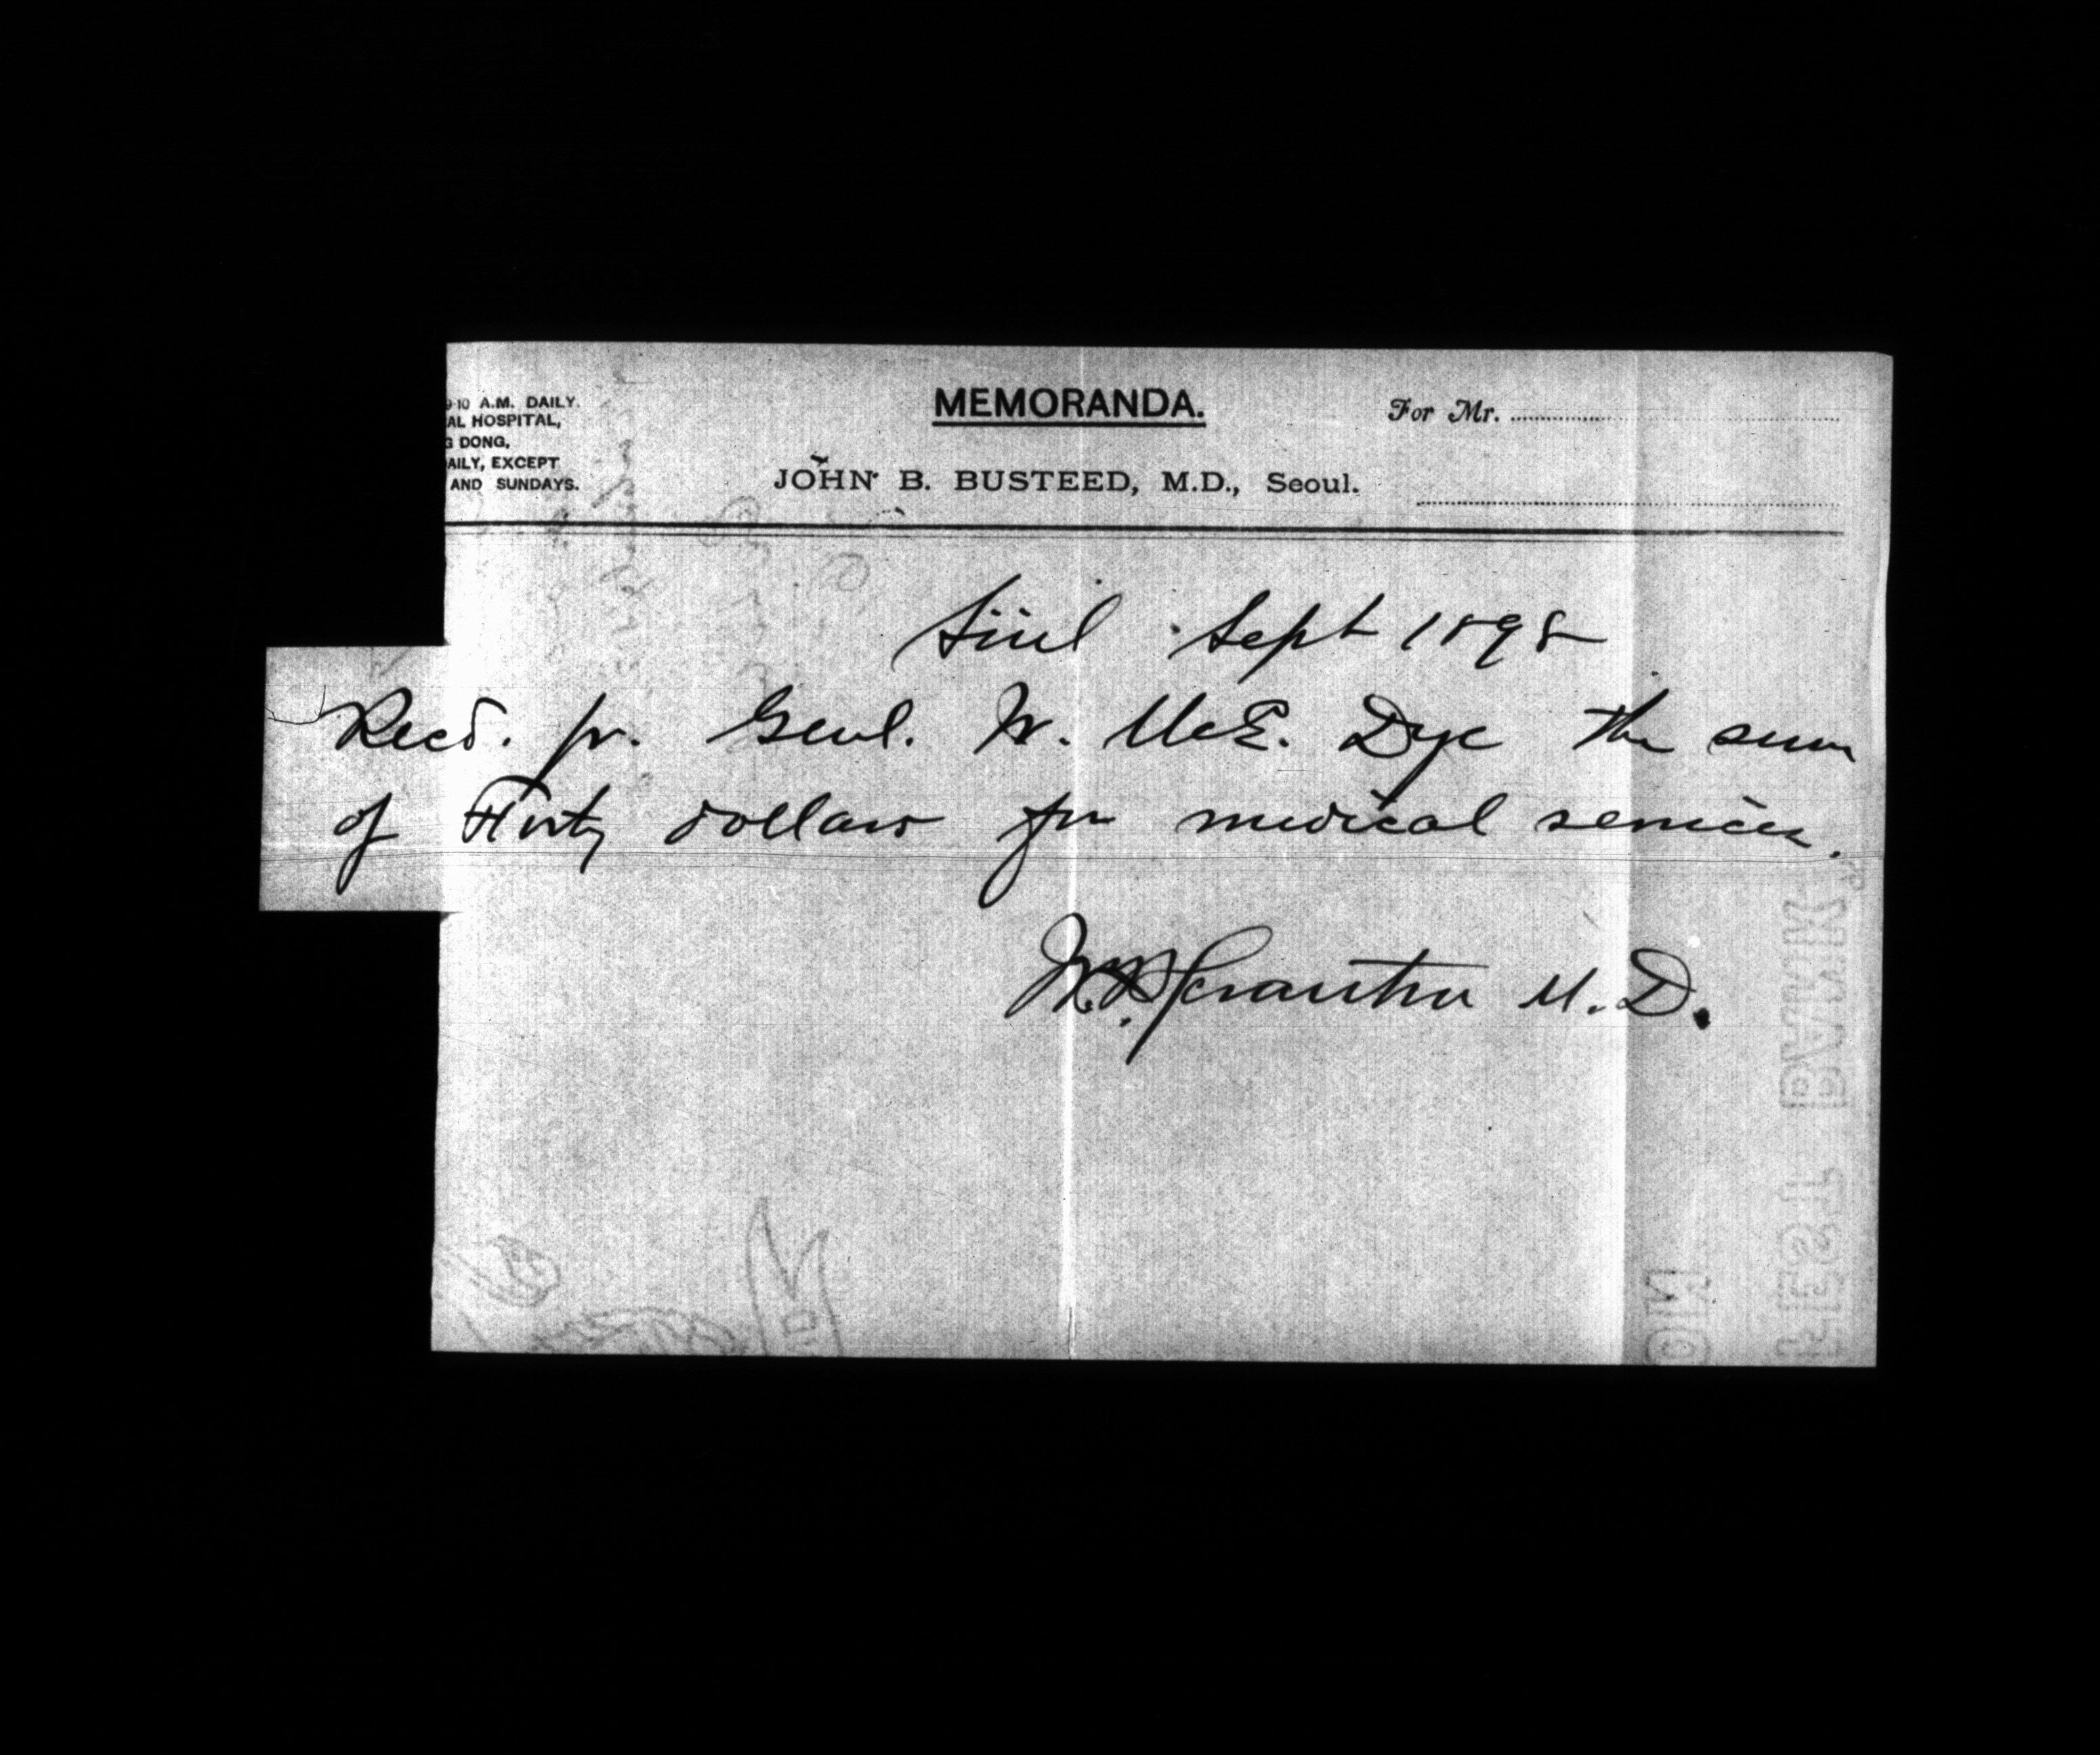 9-10 A.M. DAILY.
AL HOSPITAL,
G DONG,
AILY, EXCEPT
AND SUNDAYS.
MEMORANDA.
JOHN B. BUSTEED, M.D., Seoul.
For Mr.
Söul Sept 1898
Recd. fr. Genl. W. McE. Dye the sum
of dollars for medical services.
W. B. Scranton M.D.